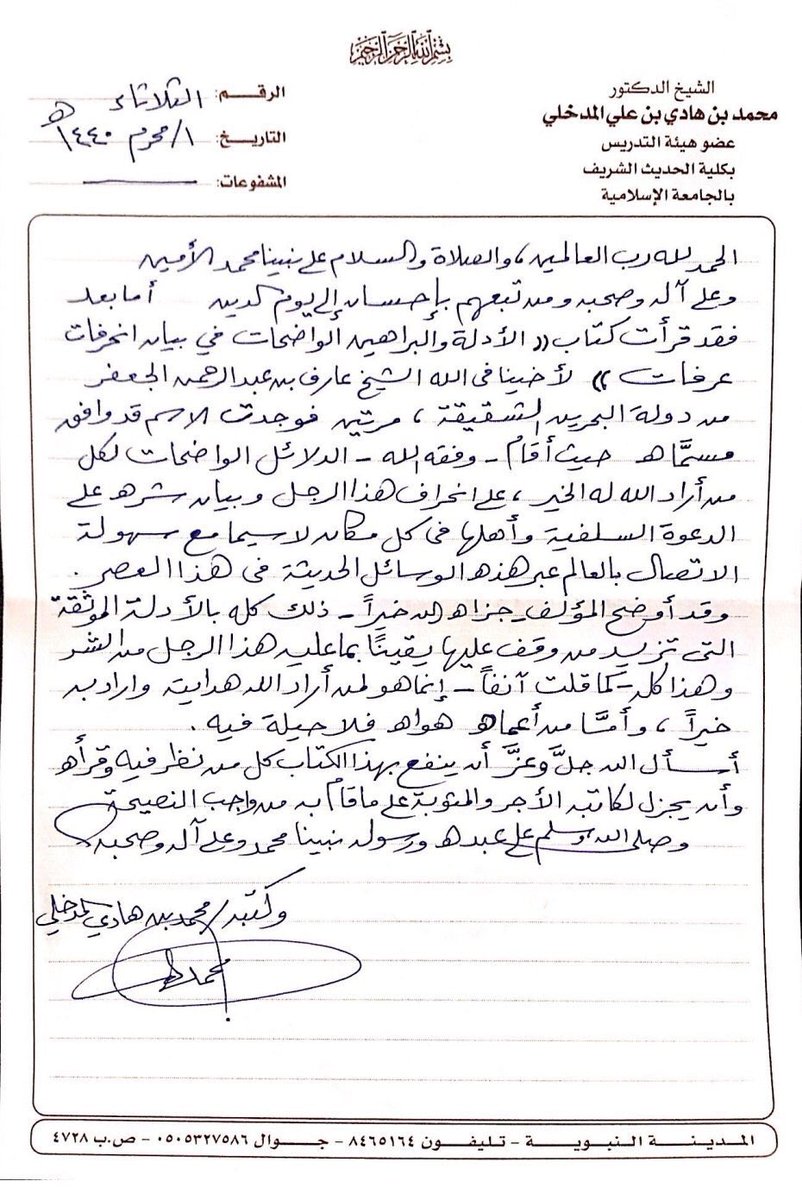 بسم الله الرحمن الرحيم
الشيخ الدكتور
محمد بن هادي بن علي المدخلي
عضو هيئة التدريس
بكلية الحديث الشريف
بالجامعة الإسلامية
الرقـــم: الثلاثاء
التاريـخ: ١/محرم ١٤٤٠هـ
المشفوعات:
الحمد لله رب العالمين، والصلاة والسلام على نبينا محمد الأمين
وعلى آله وصحبه ومن تبعهم بإحسان إلى يوم الدين أما بعد
فقد قرأت كتاب ((الأدلة والبراهين الواضحات في بيان انحرفات
عرفات)) لأخينا في الله الشيخ عارف بن عبد الرحمن الجعفر
من دولة البحرين الشقيقة، مرتين فوجدت الاسم قد وافق
مسمَّاه حيث أقام - وفقه الله - الدلائل الواضحات لكل
من أراد الله له الخير، على انحراف هذا الرجل وبيان شره على
الدعوة السلفية وأهلها في كل مكان لاسيما مع سهولة
الاتصال بالعالم عبر هذه الوسائل الحديثة في هذا العصر.
وقد أوضح المؤلف - جزاه الله خيراً - ذلك كله بالأدلة الموثقة
التي تزيد من وقف عليها يقينًا بما عليه هذا الرجل من الشر
وهذا كله - كما قلت آنفاً - إنما هو لمن أراد الله هدايته واراد به
خيراً، وأمَّا من أعماه هواه فلا حيلة فيه.
أسأل الله جلَّ وعزَّ أن ينفع بهذا الكتاب كل من نظر فيه وقرأه
وأن يجزل لكاتبه الأجر والمثوبة على ما قام به من واجب النصيحة
وصلى الله وسلم على عبده ورسوله نبينا محمد وعلى آله وصحبه
وكتبه/ محمد بن هادي المدخلي
المدينـة النبويـة - تليفون ٨٤٦٥١٦٤ - جـوال ٠٥٠٥٣٢٧٥٨٦ - ص.ب ٤٧٢٨